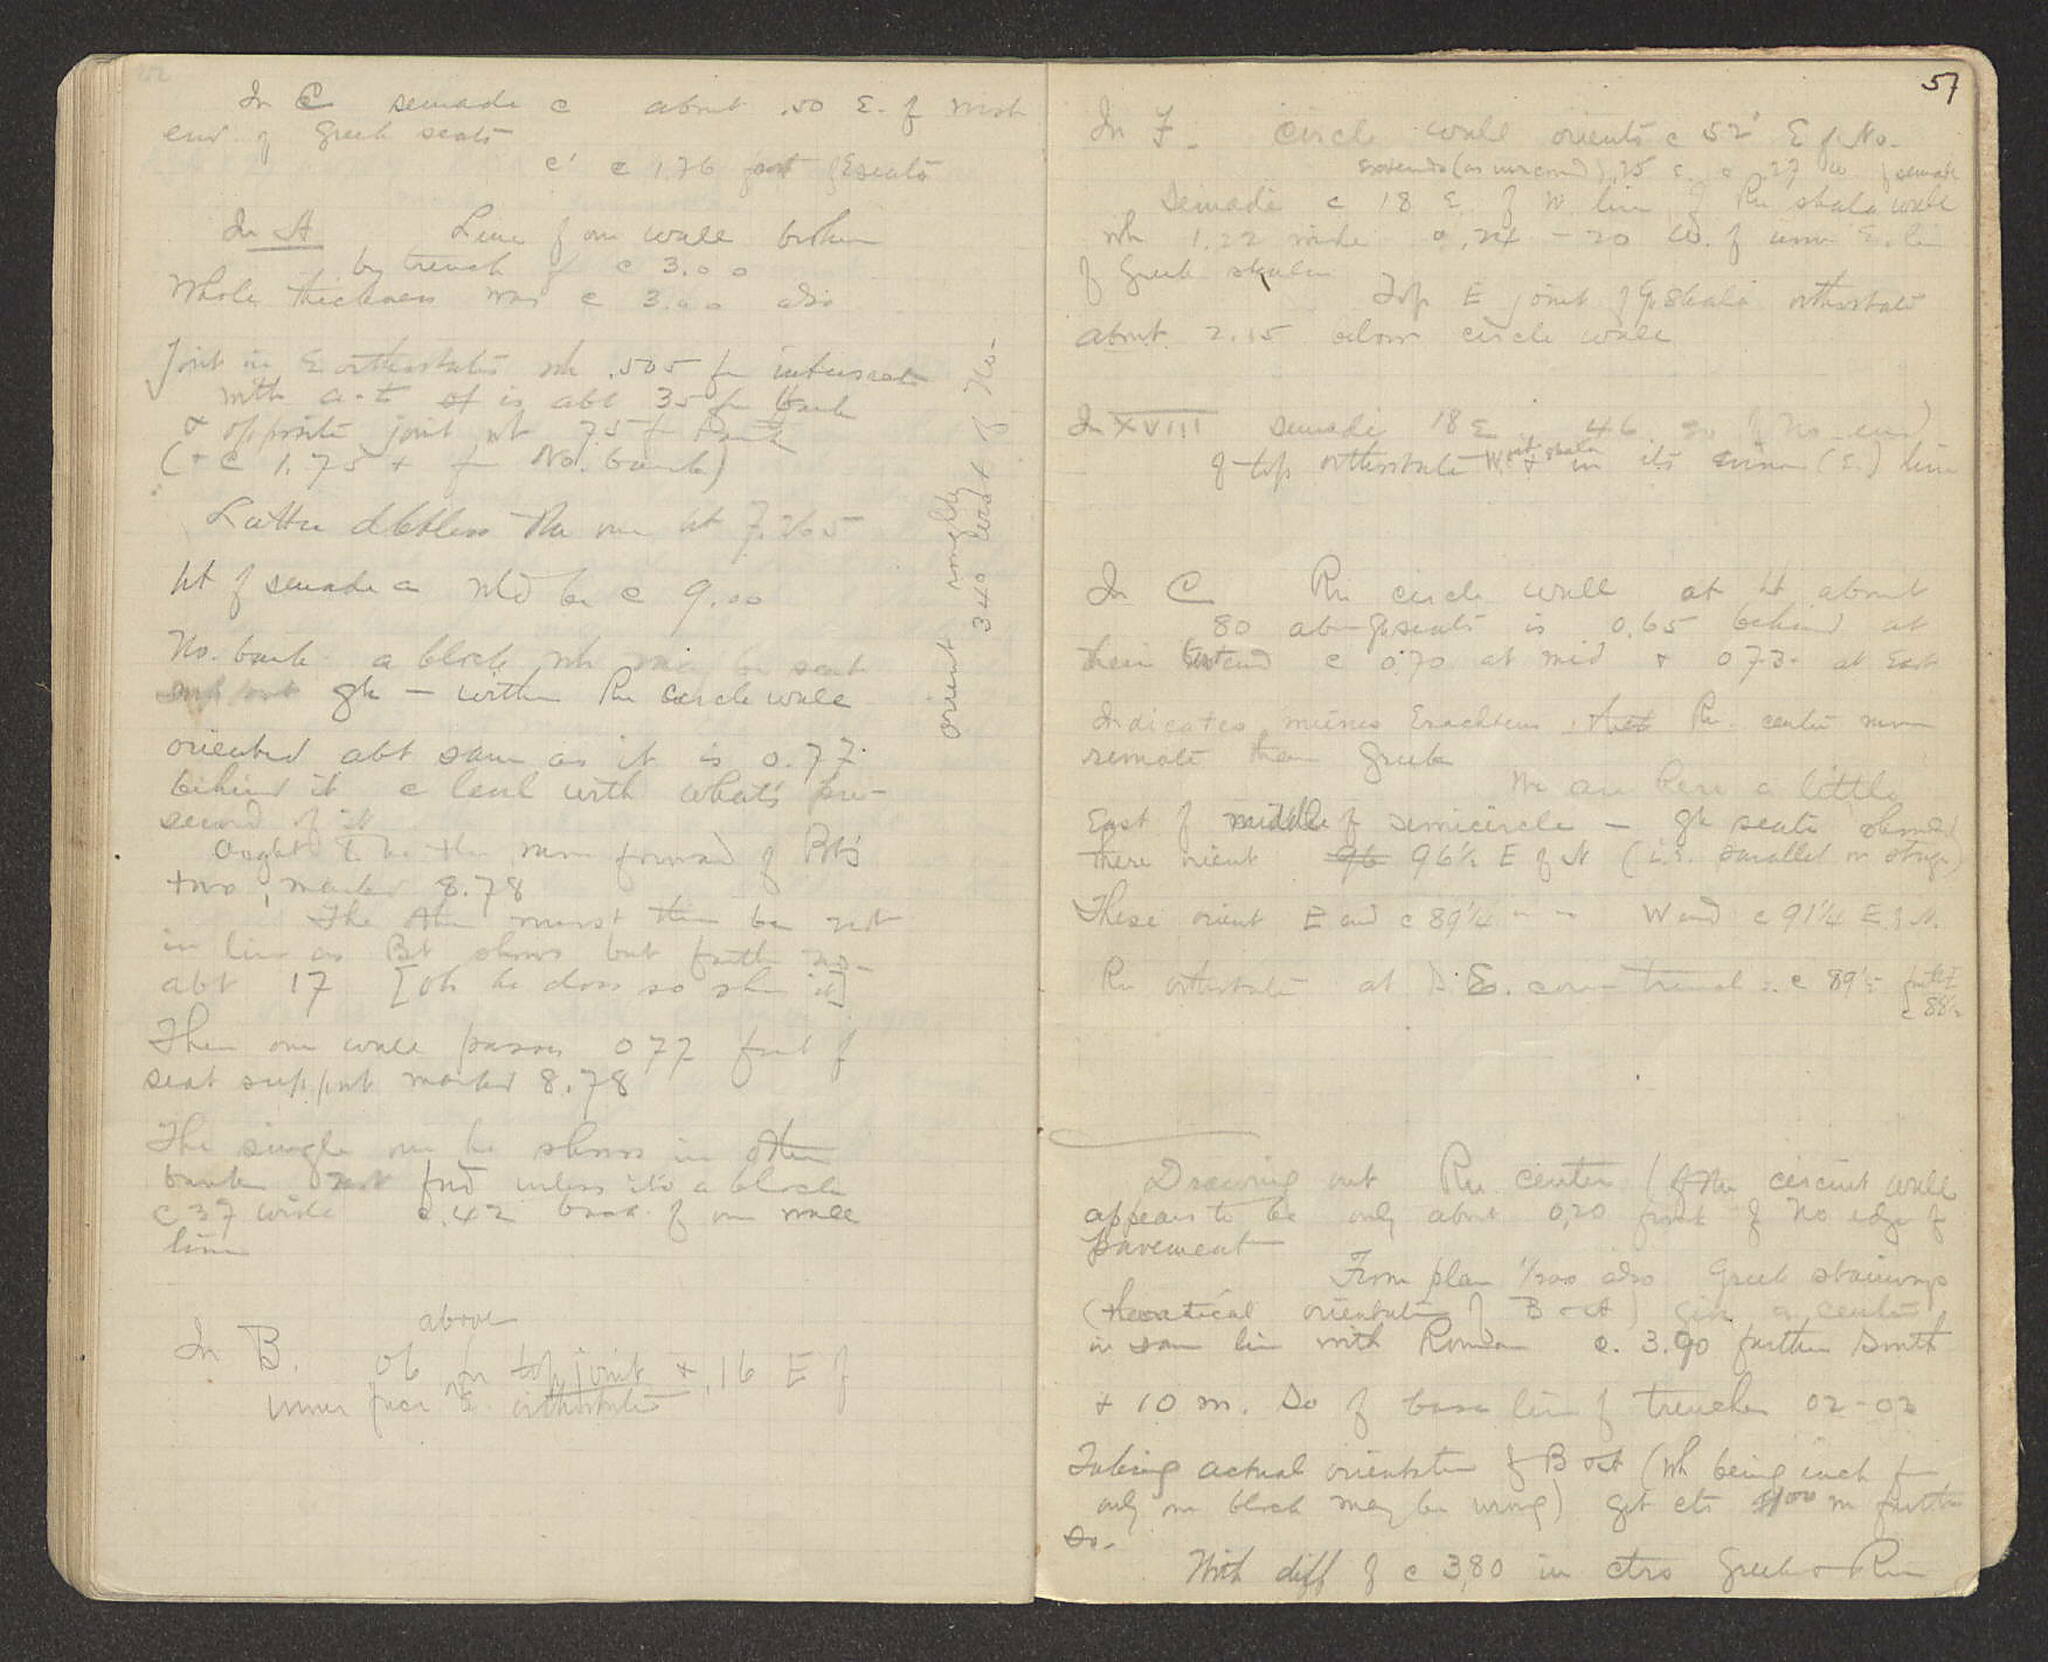 In C semade c about .50 E. of west
end of Greek seats
c' c 1.76 front of E seats
In A Line of our wall broken
by trench of c 3.00
Whole thickness was c 3.00 also
Joint in E orthostates wh .505 fr intersect
with a-t is abt 35 fr bank
& opposite joint wt 75 fr bank
(+ c 1.75 + fr No. bank)
Latter dbtless Rm one ht 7.265
ht of semade a wld be c 9.00
No. bank a block wh may be seat
support gk — within Rm circle wall
oriented abt same as it is 0.77
behind it c level with what's pre-
served of it
Ought to be the more forward of Bt's
two, marked 8.78
The other must then be not
in line as Bt shows but farther no-
abt 17 [oh he does so show it]
Then our wall passes 077 front of
seat support marked 8.78
The single one he shows in other
bank not fnd unless its a block
c 37 wide c.42 back of our wall
line
orient roughly
340 west of No.
In B. above
06 fr top joint + .16 E of
inner face of E. orthostates
57
In F. circle wall orients c 52° E of No.
extends (as uncovered) .25 E. c .27 w of semade
Semade c 18 E. of W line of Rm skala wall
wh 1.22 wide & .24 - 20 W. of inner E. line
of Greek skala
Top E joint of Gk skala orthostate
about 2.15 below circle wall
In XVIII semade 18 E 46 so of No end
of top orthostate W of skala in its inner (E.) line
In C Rm circle wall at ht about
80 above gk seats is 0.65 behind at
their West end c 0.70 at mid & 073 at East
Indicates minus Erachteus that Rm. center more
remote than Greek
We are here a little
East of middle of semicircle — gk seats should
there orient 96 96½ E of N (i.e. parallel w stage)
These orient E end c 89¼ " " W end c 91¼ E of N.
Rm orthostate at S.E. corner trench is c 89½ further E
c 88½
Drawing out Rm center (of the circuit wall
appears to be only about 0,20 front of No edge of
pavement
From plan 1/200 also Greek stairways
(theoretical orientation of B & A) give a center
in same line with Roman c. 3.90 further South
+ 10 m. So of base line of trenches 02-03
Taking actual orientation of B & A (wh being each fr
only one block may be wrong) get ctr 100 m further
So.
With diff of c 3,80 in ctrs Greek & Rm